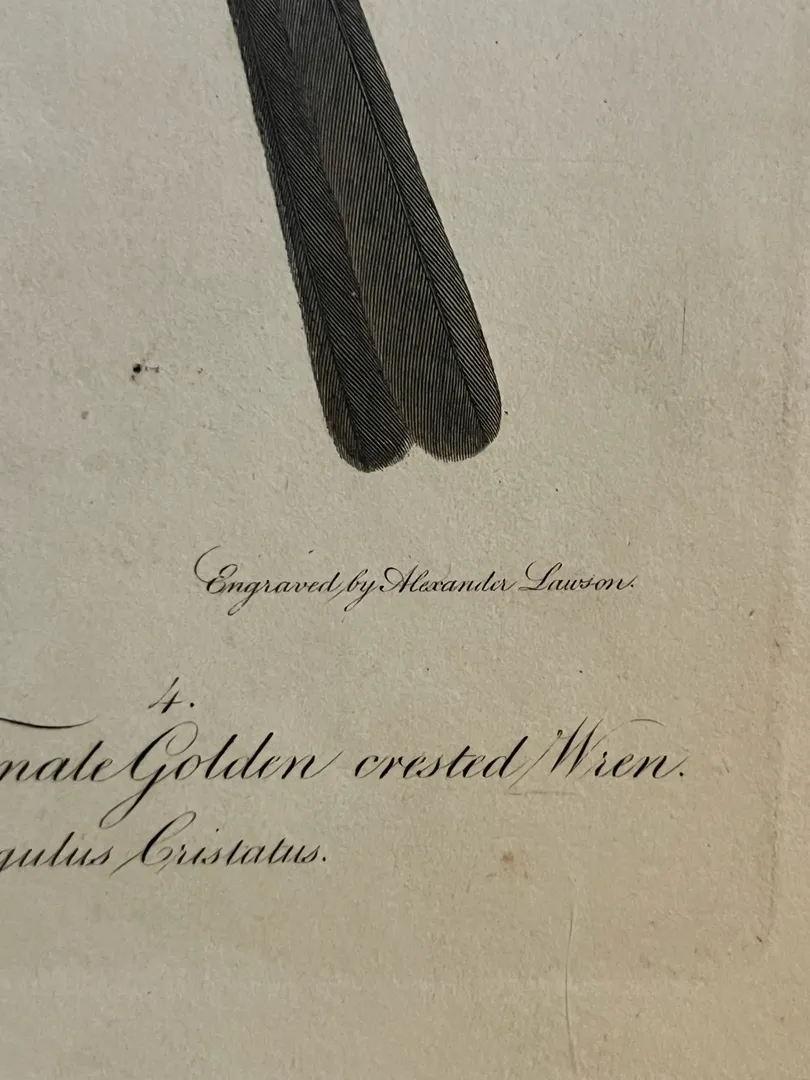 Engraved by Alexander Lawson.
4.
male Golden crested Wren.
gulus Cristatus.